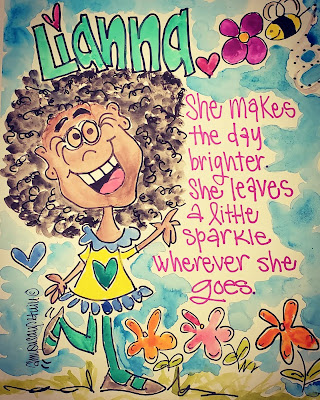 Lianna
She makes
the day
brighter.
She leaves
a little
sparkle
wherever she
goes.